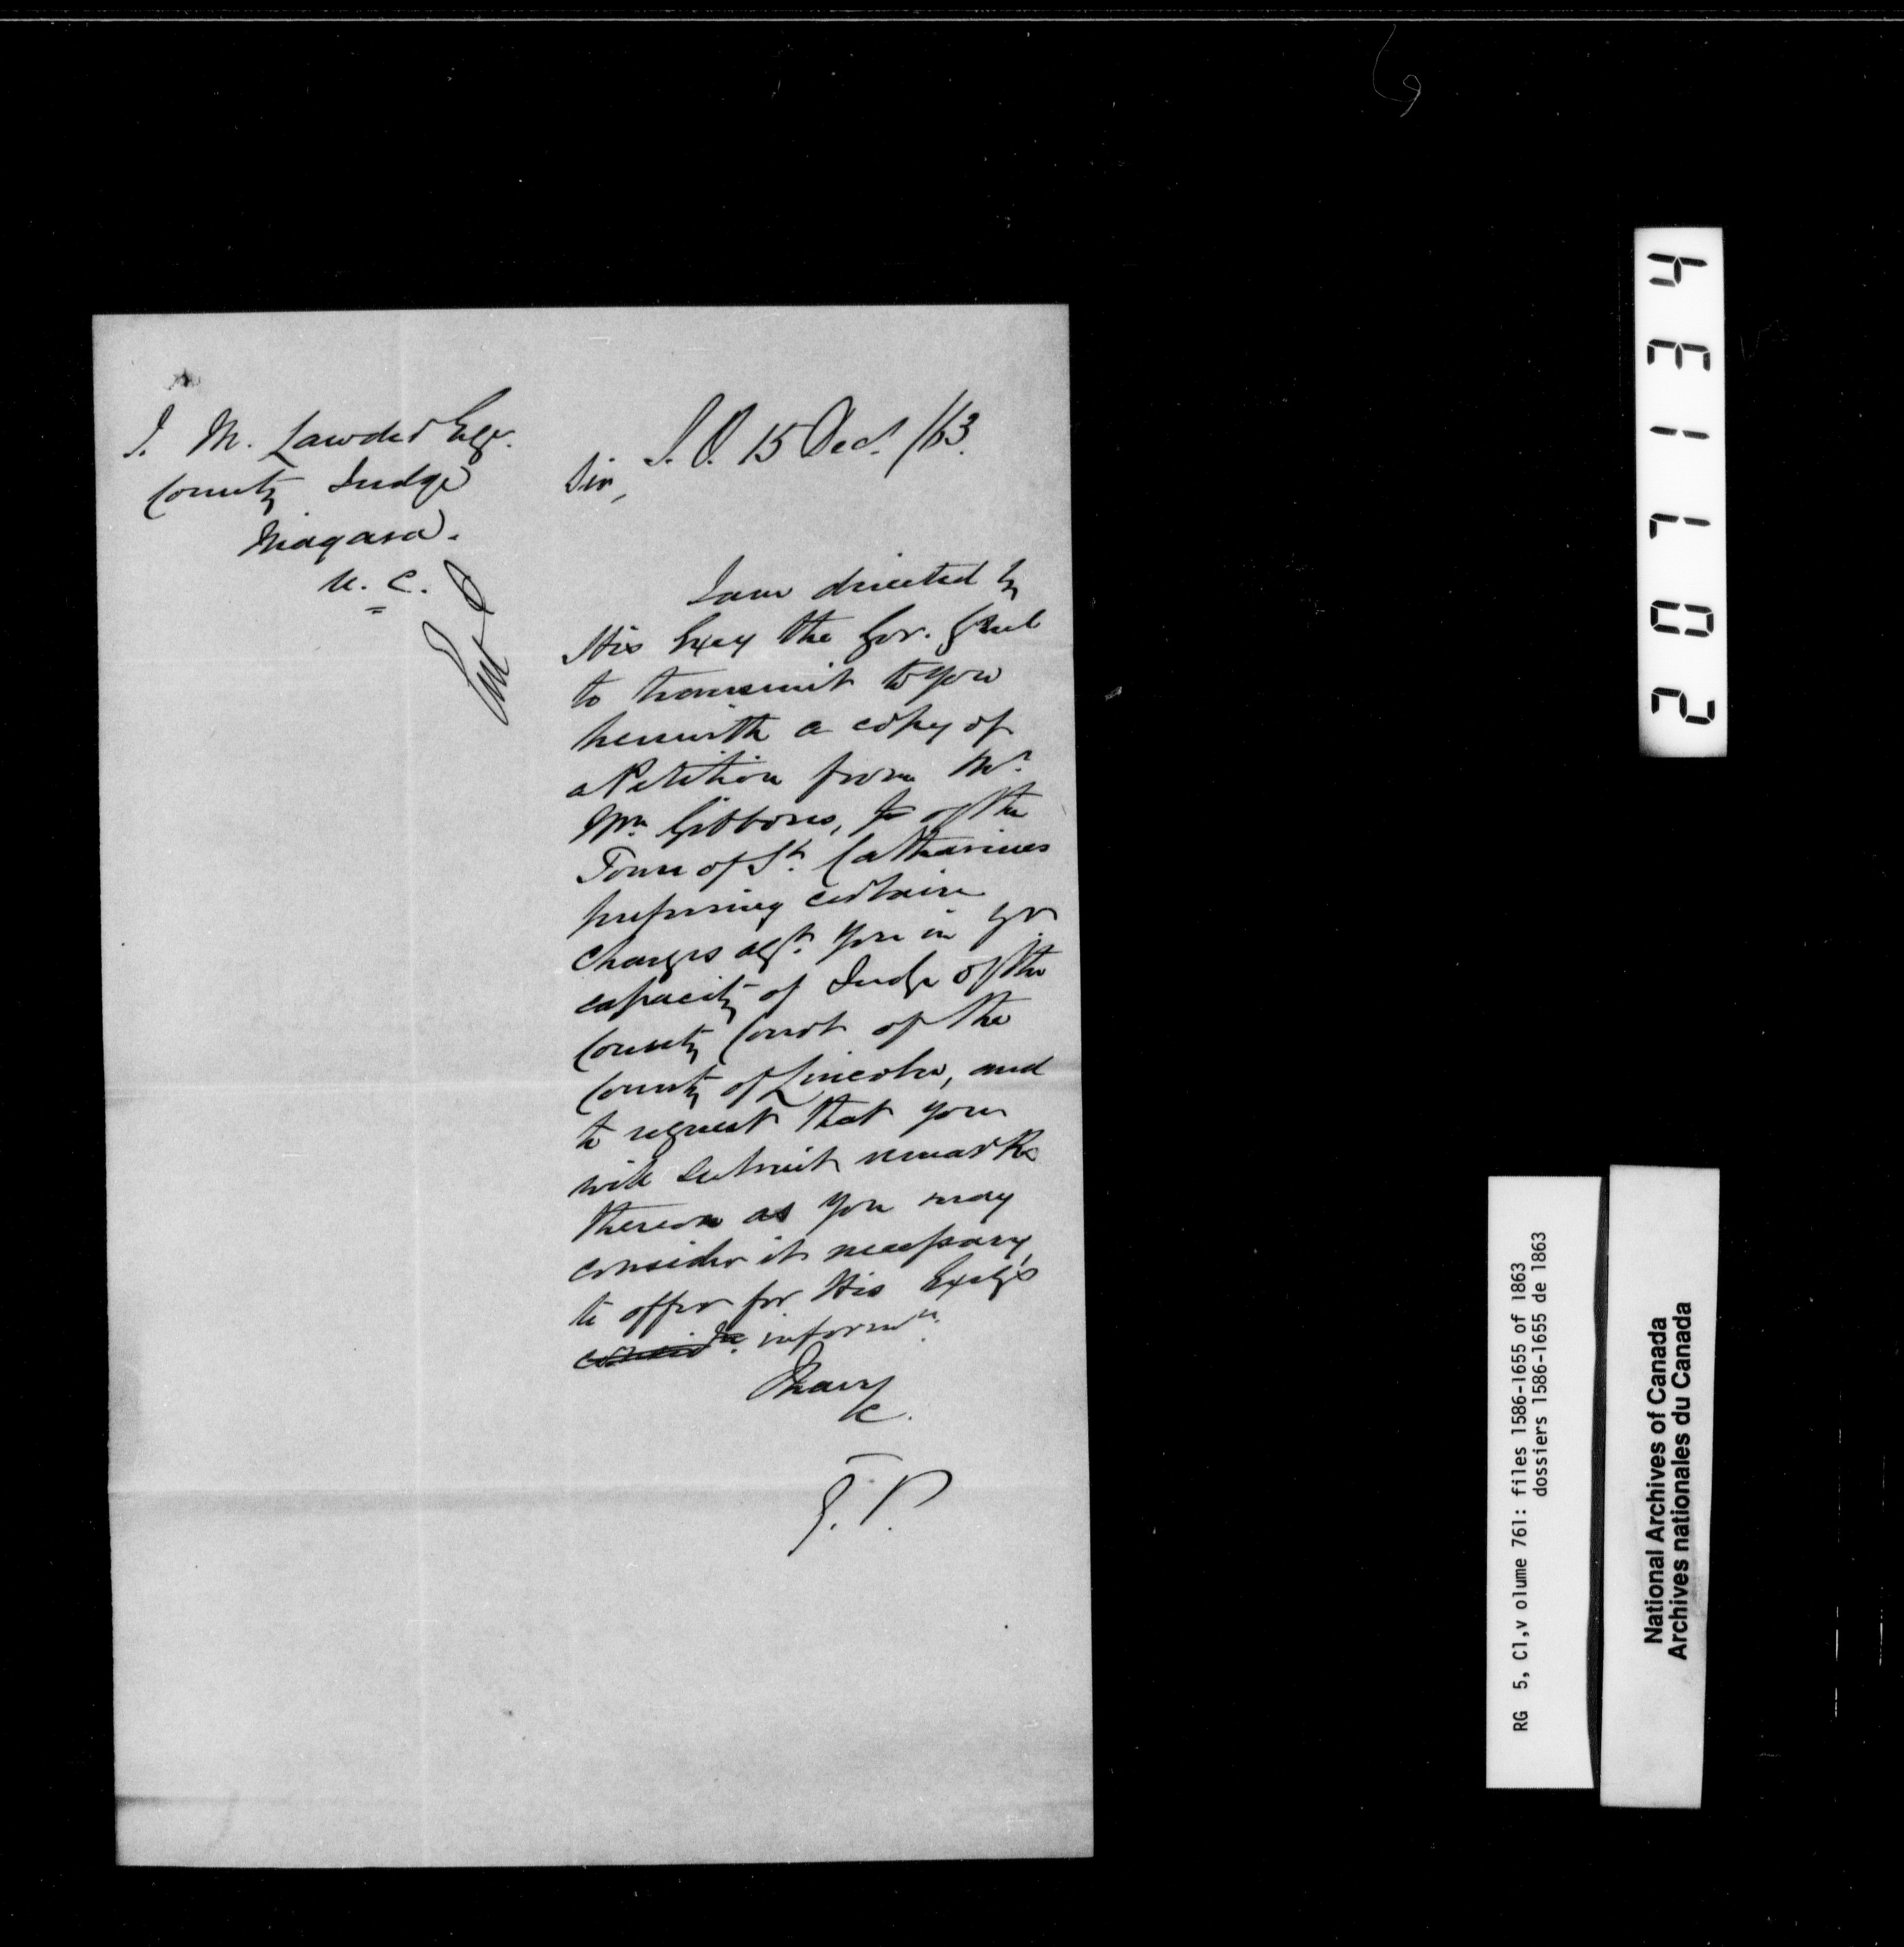 J. M. Lawder Esqr.
County Judge
Niagara.
U. C.
S. O. 15 Decr. /63.
Sir,
I am directed by
His Excy the Gov. Genl
to transmit to you
herewith a copy of
a Petition from Mr.
Wm Gibbons, Jr of the
Town of St. Catharines
preferring certain
charges agst. you in yr
capacity of Judge of the
County Court of the
County of Lincoln, and
to request that you
will submit remarks
thereon as you may
consider it necessary
to offer for His Excy's
informn.
I have
&c.
E. P.
207134
RG 5, C1,v olume 761: files 1586-1655 of 1863
dossiers 1586-1655 de 1863
National Archives of Canada
Archives nationales du Canada